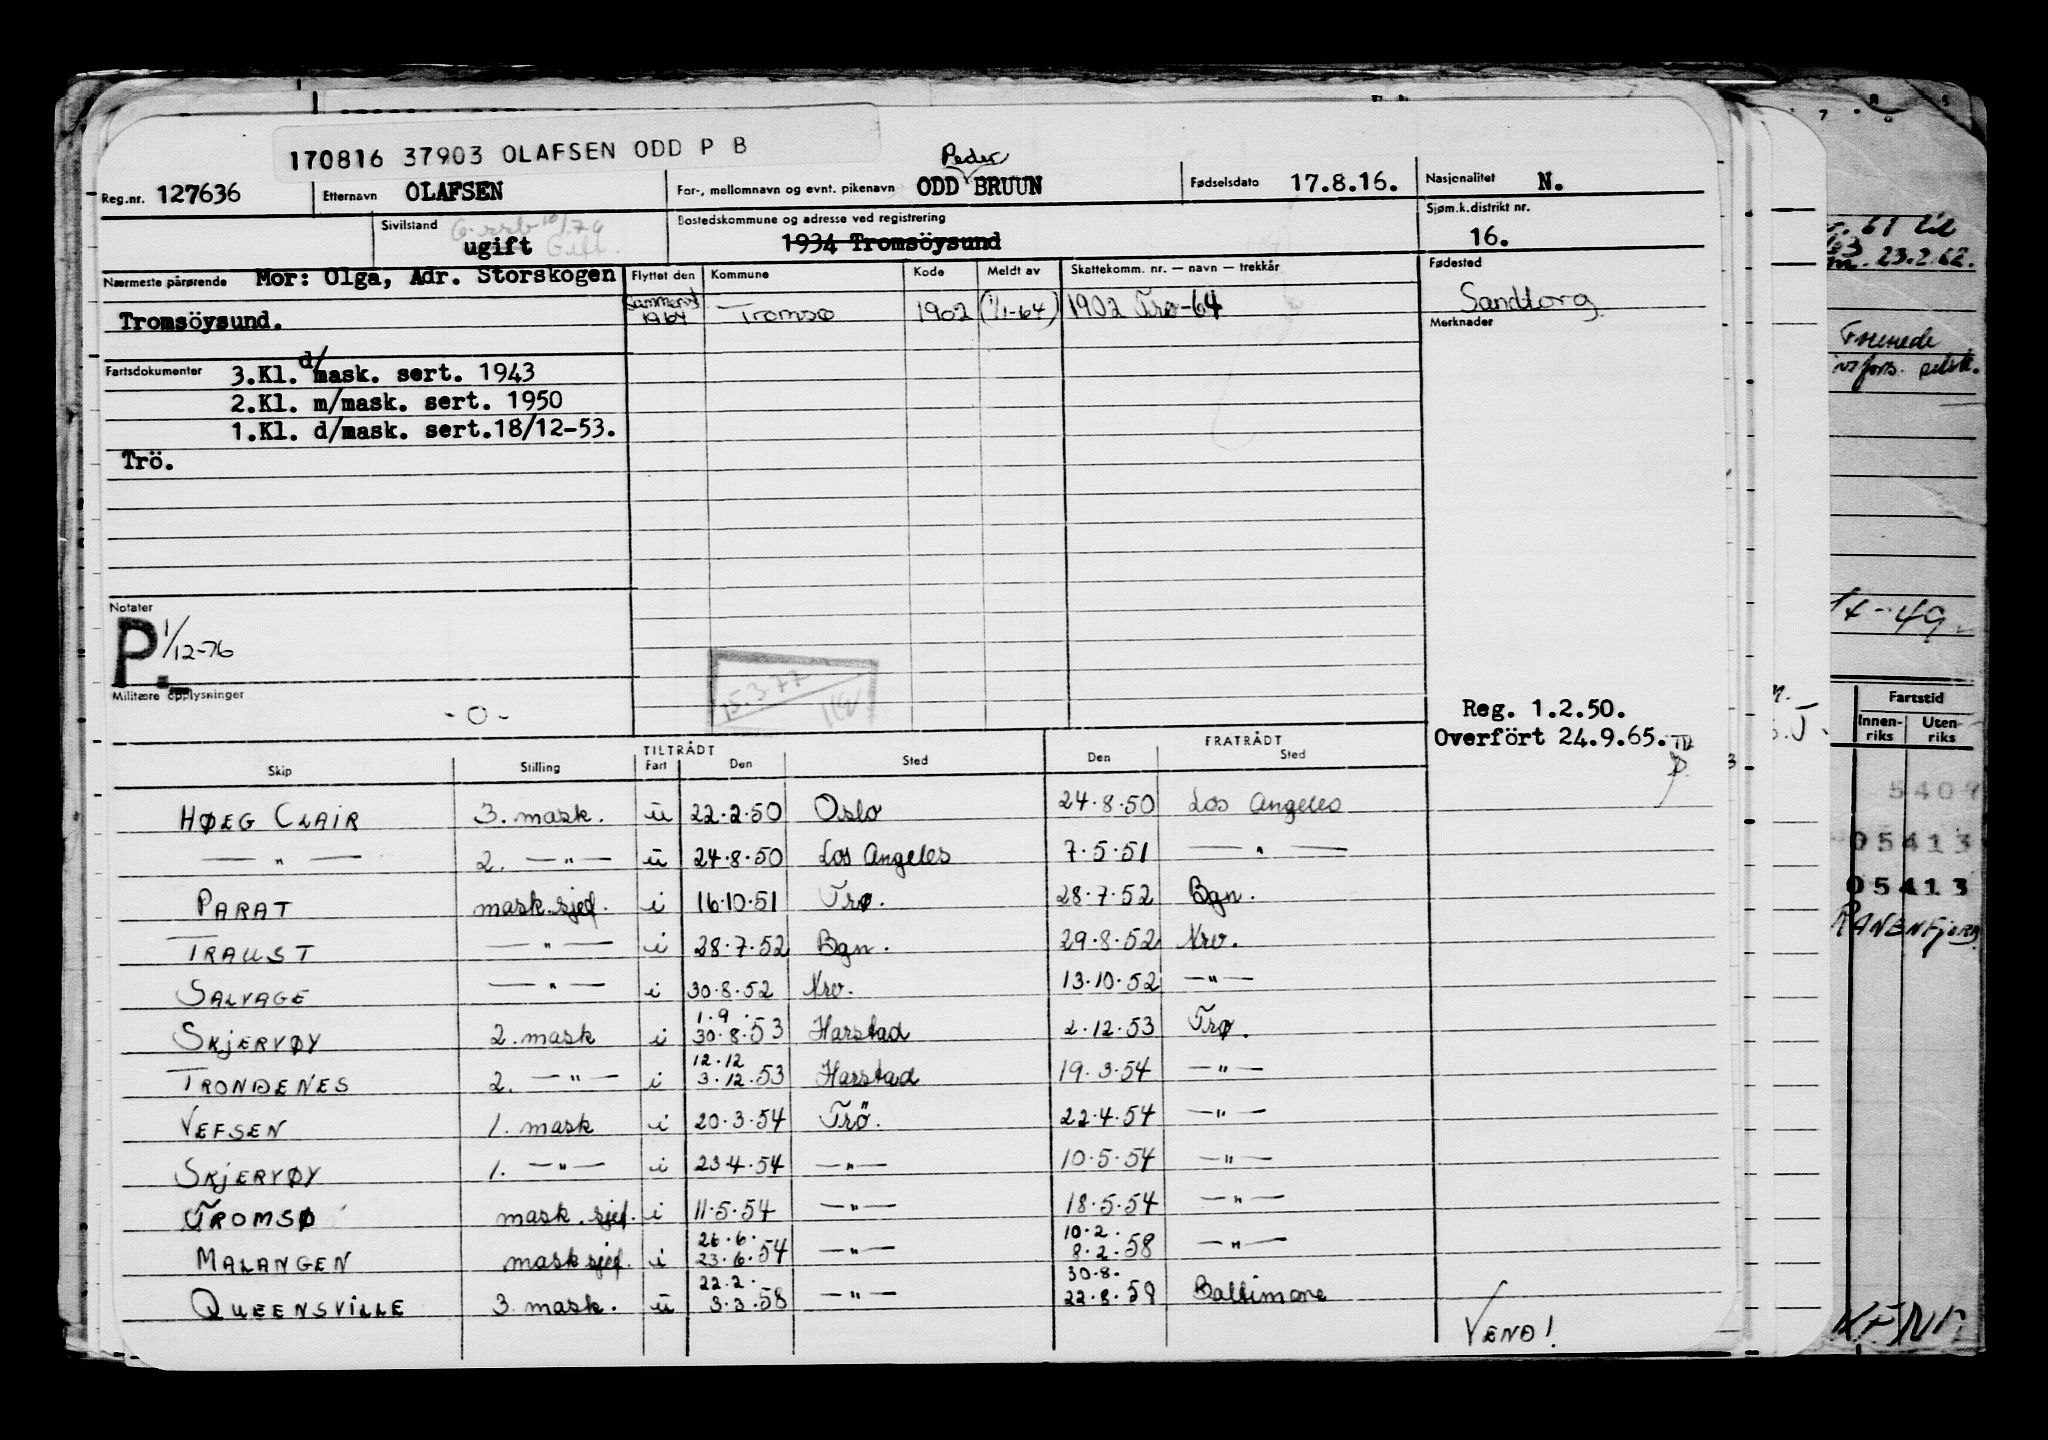 170816 37903 OLAFSEN ODD P B
Reg.nr. 127636 Etternavn OLAFSEN For-, mellomnavn og evnt. pikenavn ODD Peder BRUUN Fødselsdato 17.8.16. Nasjonalitet N.
Sivilstand ugift Gift. Bostedskommune og adresse ved registrering 1934 Tromsöysund Sjøm.k.distrikt nr. 16.
Nærmeste pårørende Mor: Olga, Adr. Storskogen Flyttet den Kommune Kode Meldt av Skattekomm. nr. — navn — trekkår Fødested
Tromsöysund. Sommeren 1964 Tromsø 1902 (1/1-64) 1902 Trø-64 Sandtorg
Merknader
Fartsdokumenter 3.Kl. d/mask. sert. 1943
2.Kl. m/mask. sert. 1950
1.Kl. d/mask. sert.18/12-53.
Trö.
Notater
P. 1/12-76
Militære opplysninger
- O -
15.3.77
Reg. 1.2.50.
Overfört 24.9.65.
TILTRÅDT FRATRÅDT
Skip Stilling Fart Den Sted Den Sted
HØEG CLAIR 3. mask. u 22.2.50 Oslo 24.8.50 Los Angeles
— " — 2. — " — u 24.8.50 Los Angeles 7.5.51 — " —
PARAT mask.sjef. i 16.10.51 Trø. 28.7.52 Bgn.
TRAUST — " — i 28.7.52 Bgn. 29.8.52 Nrv.
SALVAGE — " — i 30.8.52 Nrv. 13.10.52 — " —
SKJERVØY 2. mask i 1.9. 30.8.53 Harstad 2.12.53 Trø.
TRONDENES 2. — " — i 12.12 3.12.53 Harstad 19.3.54 — " —
VEFSEN 1. mask i 20.3.54 Trö. 22.4.54 — " —
SKJERVØY 1. — " — i 23.4.54 — " — 10.5.54 — " —
TROMSØ mask.sjef. i 11.5.54 — " — 18.5.54 — " —
MALANGEN mask sjef. i 26.6. 23.6.54 — " — 10.2. 8.2.58 — " —
QUEENSVILLE 3. mask. u 22.2. 3.3.58 — " — 30.8. 22.8.59 Baltimore
VEND!
61 til
23.2.62.
49
Fartstid
Innenriks Utenriks
5409
05413
05413
RANENFJORD